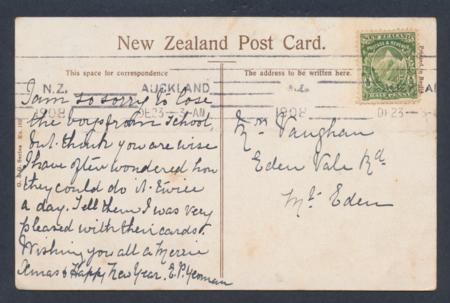 New Zealand Post Card.
This space for correspondence
The address to be written here.
N.Z. AUCKLAND
1908 DE23 3-AM
1908 DE23 3-AM
NEW ZEALAND
POSTAGE & REVENUE
I am so sorry to lose
the boys from School,
but thank you are wise
I have often wondered how
they could do it twice
a day. Tell them I was very
pleased with their cards.
Wishing you all a Merrie
Xmas & Happy New Year. E.P. Yeoman
Mrs Vaughan
Eden Vale Rd
Mt. Eden